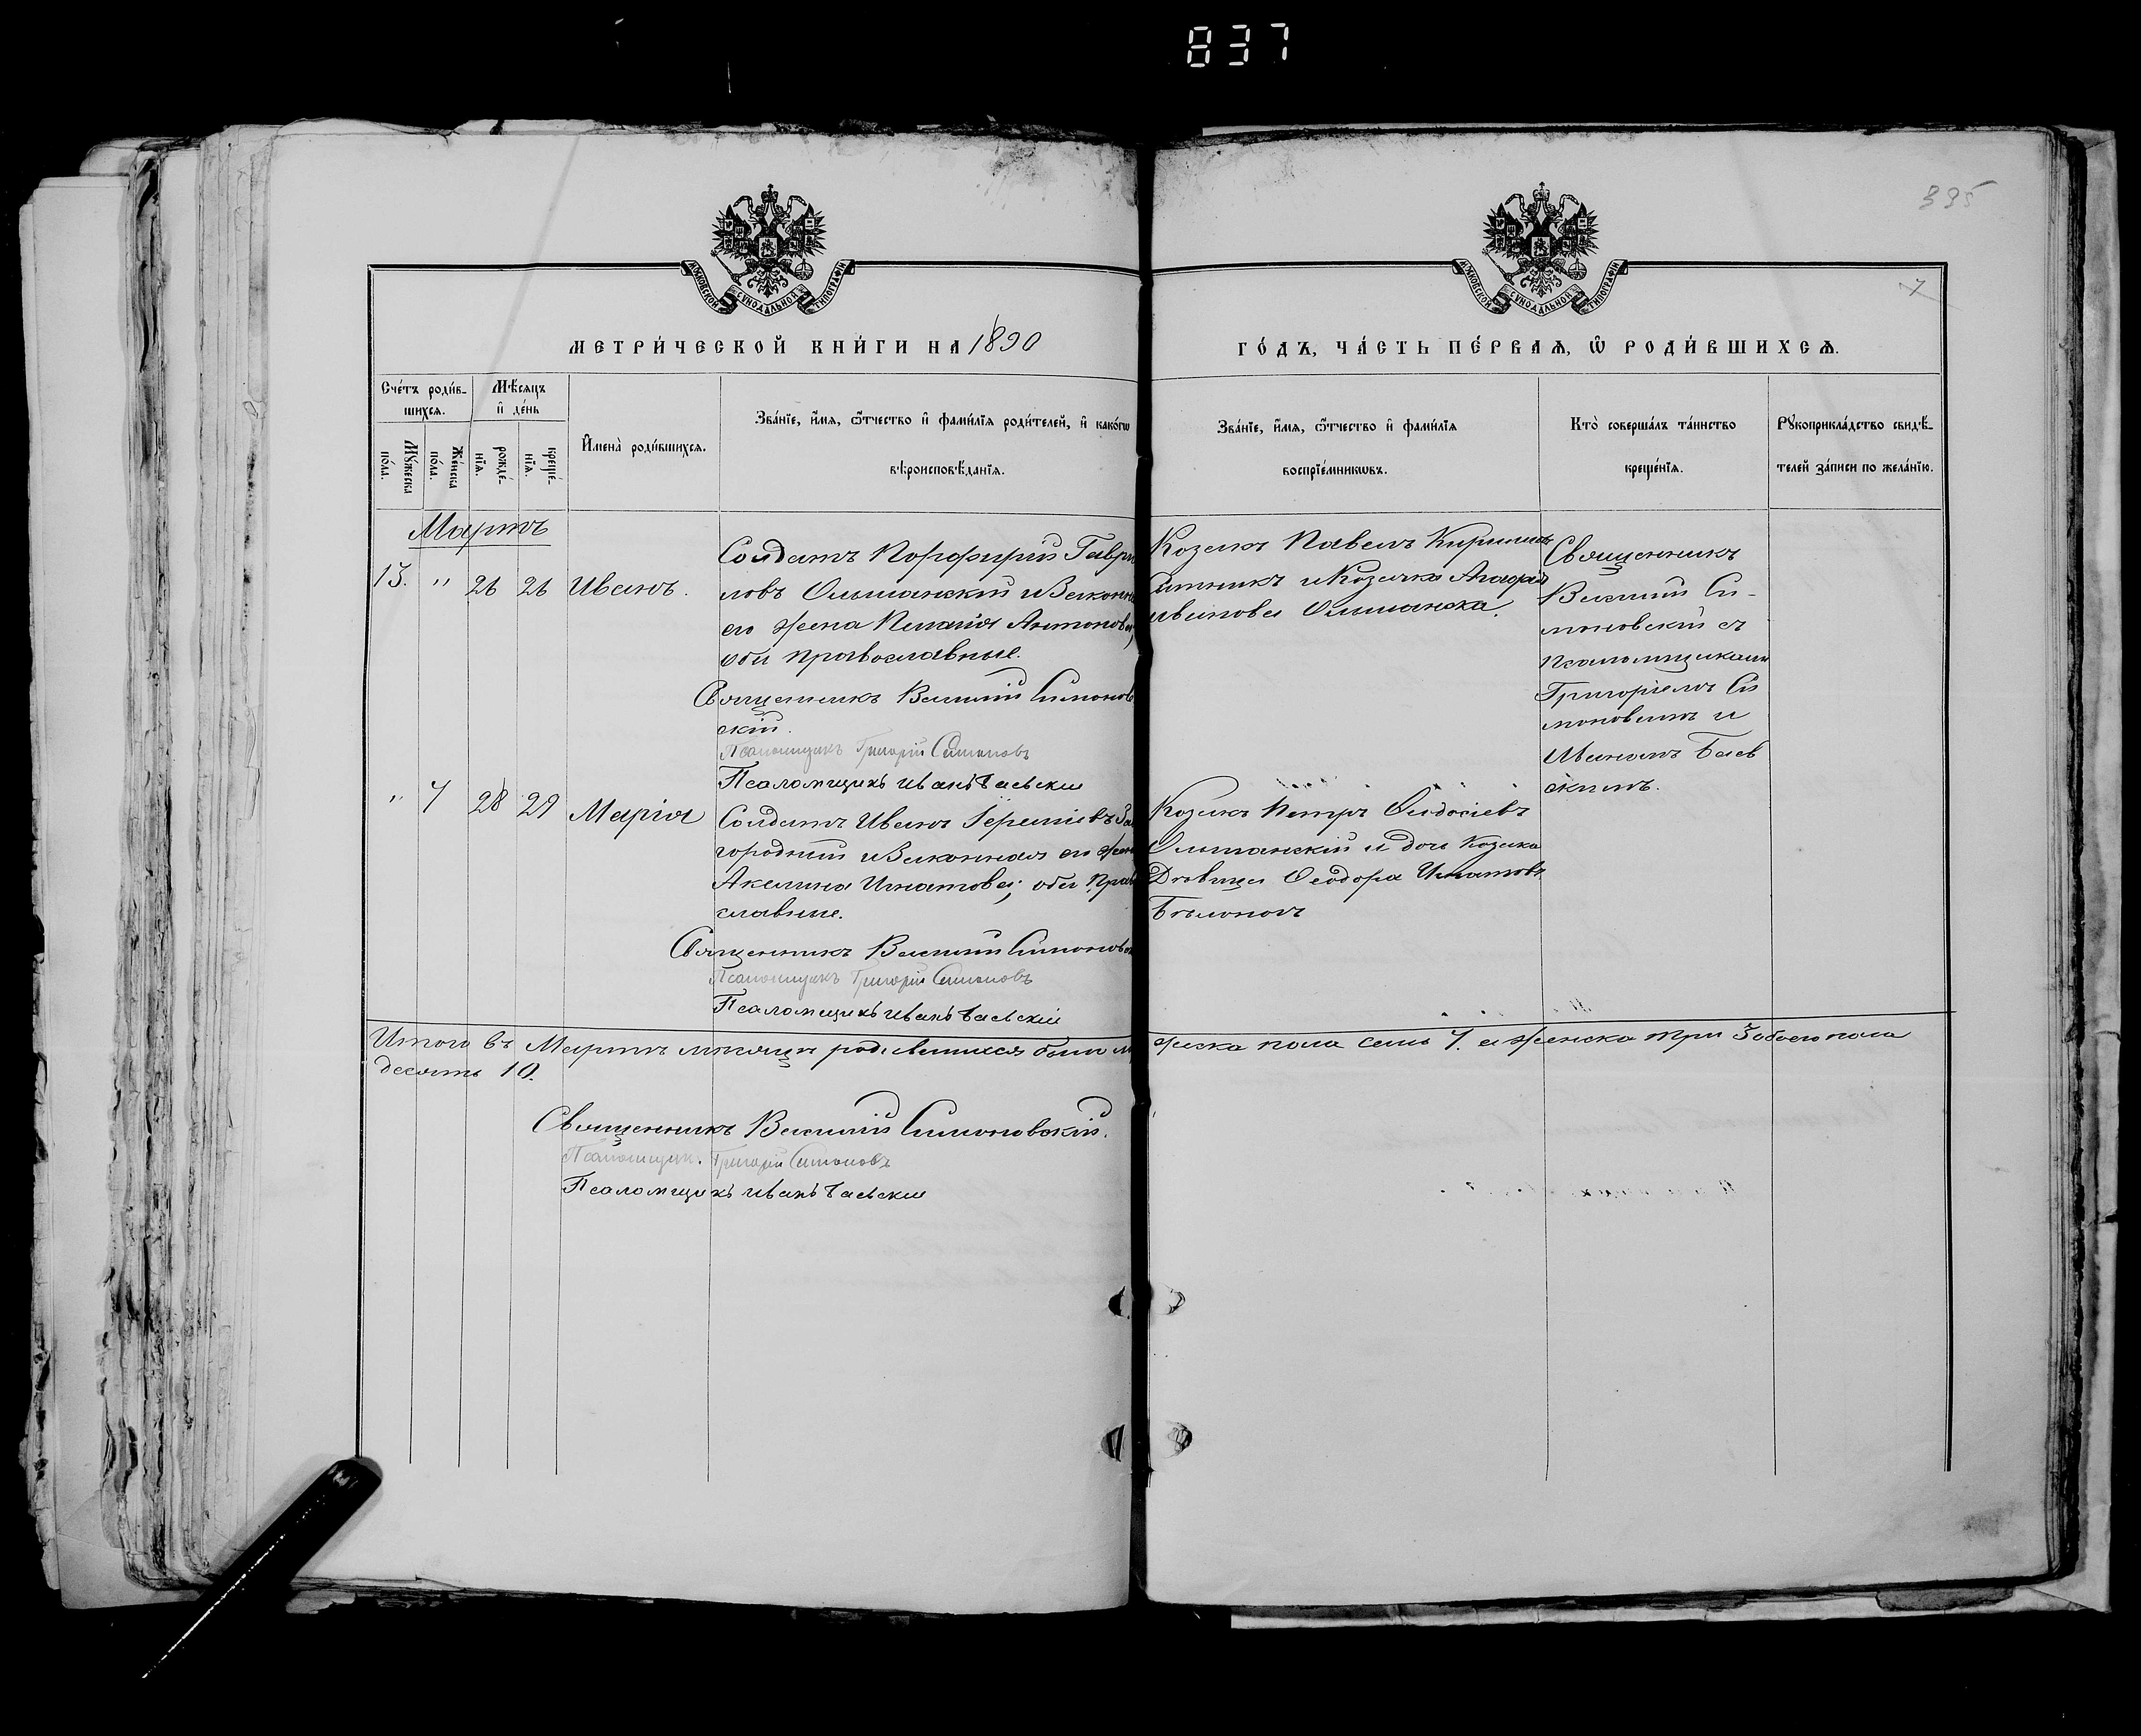 837
335
7
МОСКОВСКОЙ СѴНОДАЛЬНОЙ ТИПОГРАФІИ
МОСКОВСКОЙ СѴНОДАЛЬНОЙ ТИПОГРАФІИ
МЕТРИ́ЧЕСКОЙ КНИ́ГИ НА 1890
ГО́ДЪ, ЧА́СТЬ ПЕ́РВАѦ, Ѡ҆ РОДИ́ВШИХСѦ.
Сче́тъ роди́в-
шихсѧ.
Мѣ́сѧцъ
и҆ де́нь
Мꙋ́жеска
по́ла.
Же́нска
по́ла.
рожде́-
нїѧ.
креще́-
нїѧ.
И҆мена̀ роди́вшихсѧ.
Зва́нїе, и҆́мѧ, ѻ҆́тчество и҆ фами́лїѧ роди́телей, и҆ како́гѡ
вѣроисповѣ́данїѧ.
Зва́нїе, и҆́мѧ, ѻ҆́тчество и҆ фами́лїѧ
воспрїе́мникѡвъ.
Кто̀ соверша́лъ та́инство
креще́нїѧ.
Рꙋкоприкла́дство свидѣ́-
телей за́писи по жела́нїю.
Мартъ
13. " 26 26 Иванъ.
Солдатъ Порфирій Гаври
ловъ Ольшанскій и Законная
его жена Пелагія Антонова,
оба православные.
Священникъ Василій Симонов
скій.
Псаломщикъ Григорій Симоновъ
Псаломщикъ Иванъ Баевскій
Козакъ Павелъ
и Козачка
Ольшанска.
Священникъ
Василій Си-
моновскій съ
Псаломщиками
Григоріемъ Си
моновымъ и
Иваномъ Баев
скимъ.
" 7 28 29 Марія
Солдатъ Иванъ Іереміевъ За
городній и Законная его жена
Акилина Игнатова; оба Право
славные.
Священникъ Василій Симоновск
Псаломщикъ Григорій Симоновъ
Псаломщикъ Иванъ Баевскій
Козакъ Петръ Ѳеодосіевъ
Ольшанскій и дочь Козака
Дѣвица Ѳеодора Игнатова
Итого въ Мартѣ мѣсяцѣ родившихся было му
жеска пола семь 7. а женска три 3 обоего пола
десять 10.
Священникъ Василій Симоновскій.
Псаломщик. Григорій Симоновъ
Псаломщикъ Иванъ Баевскій